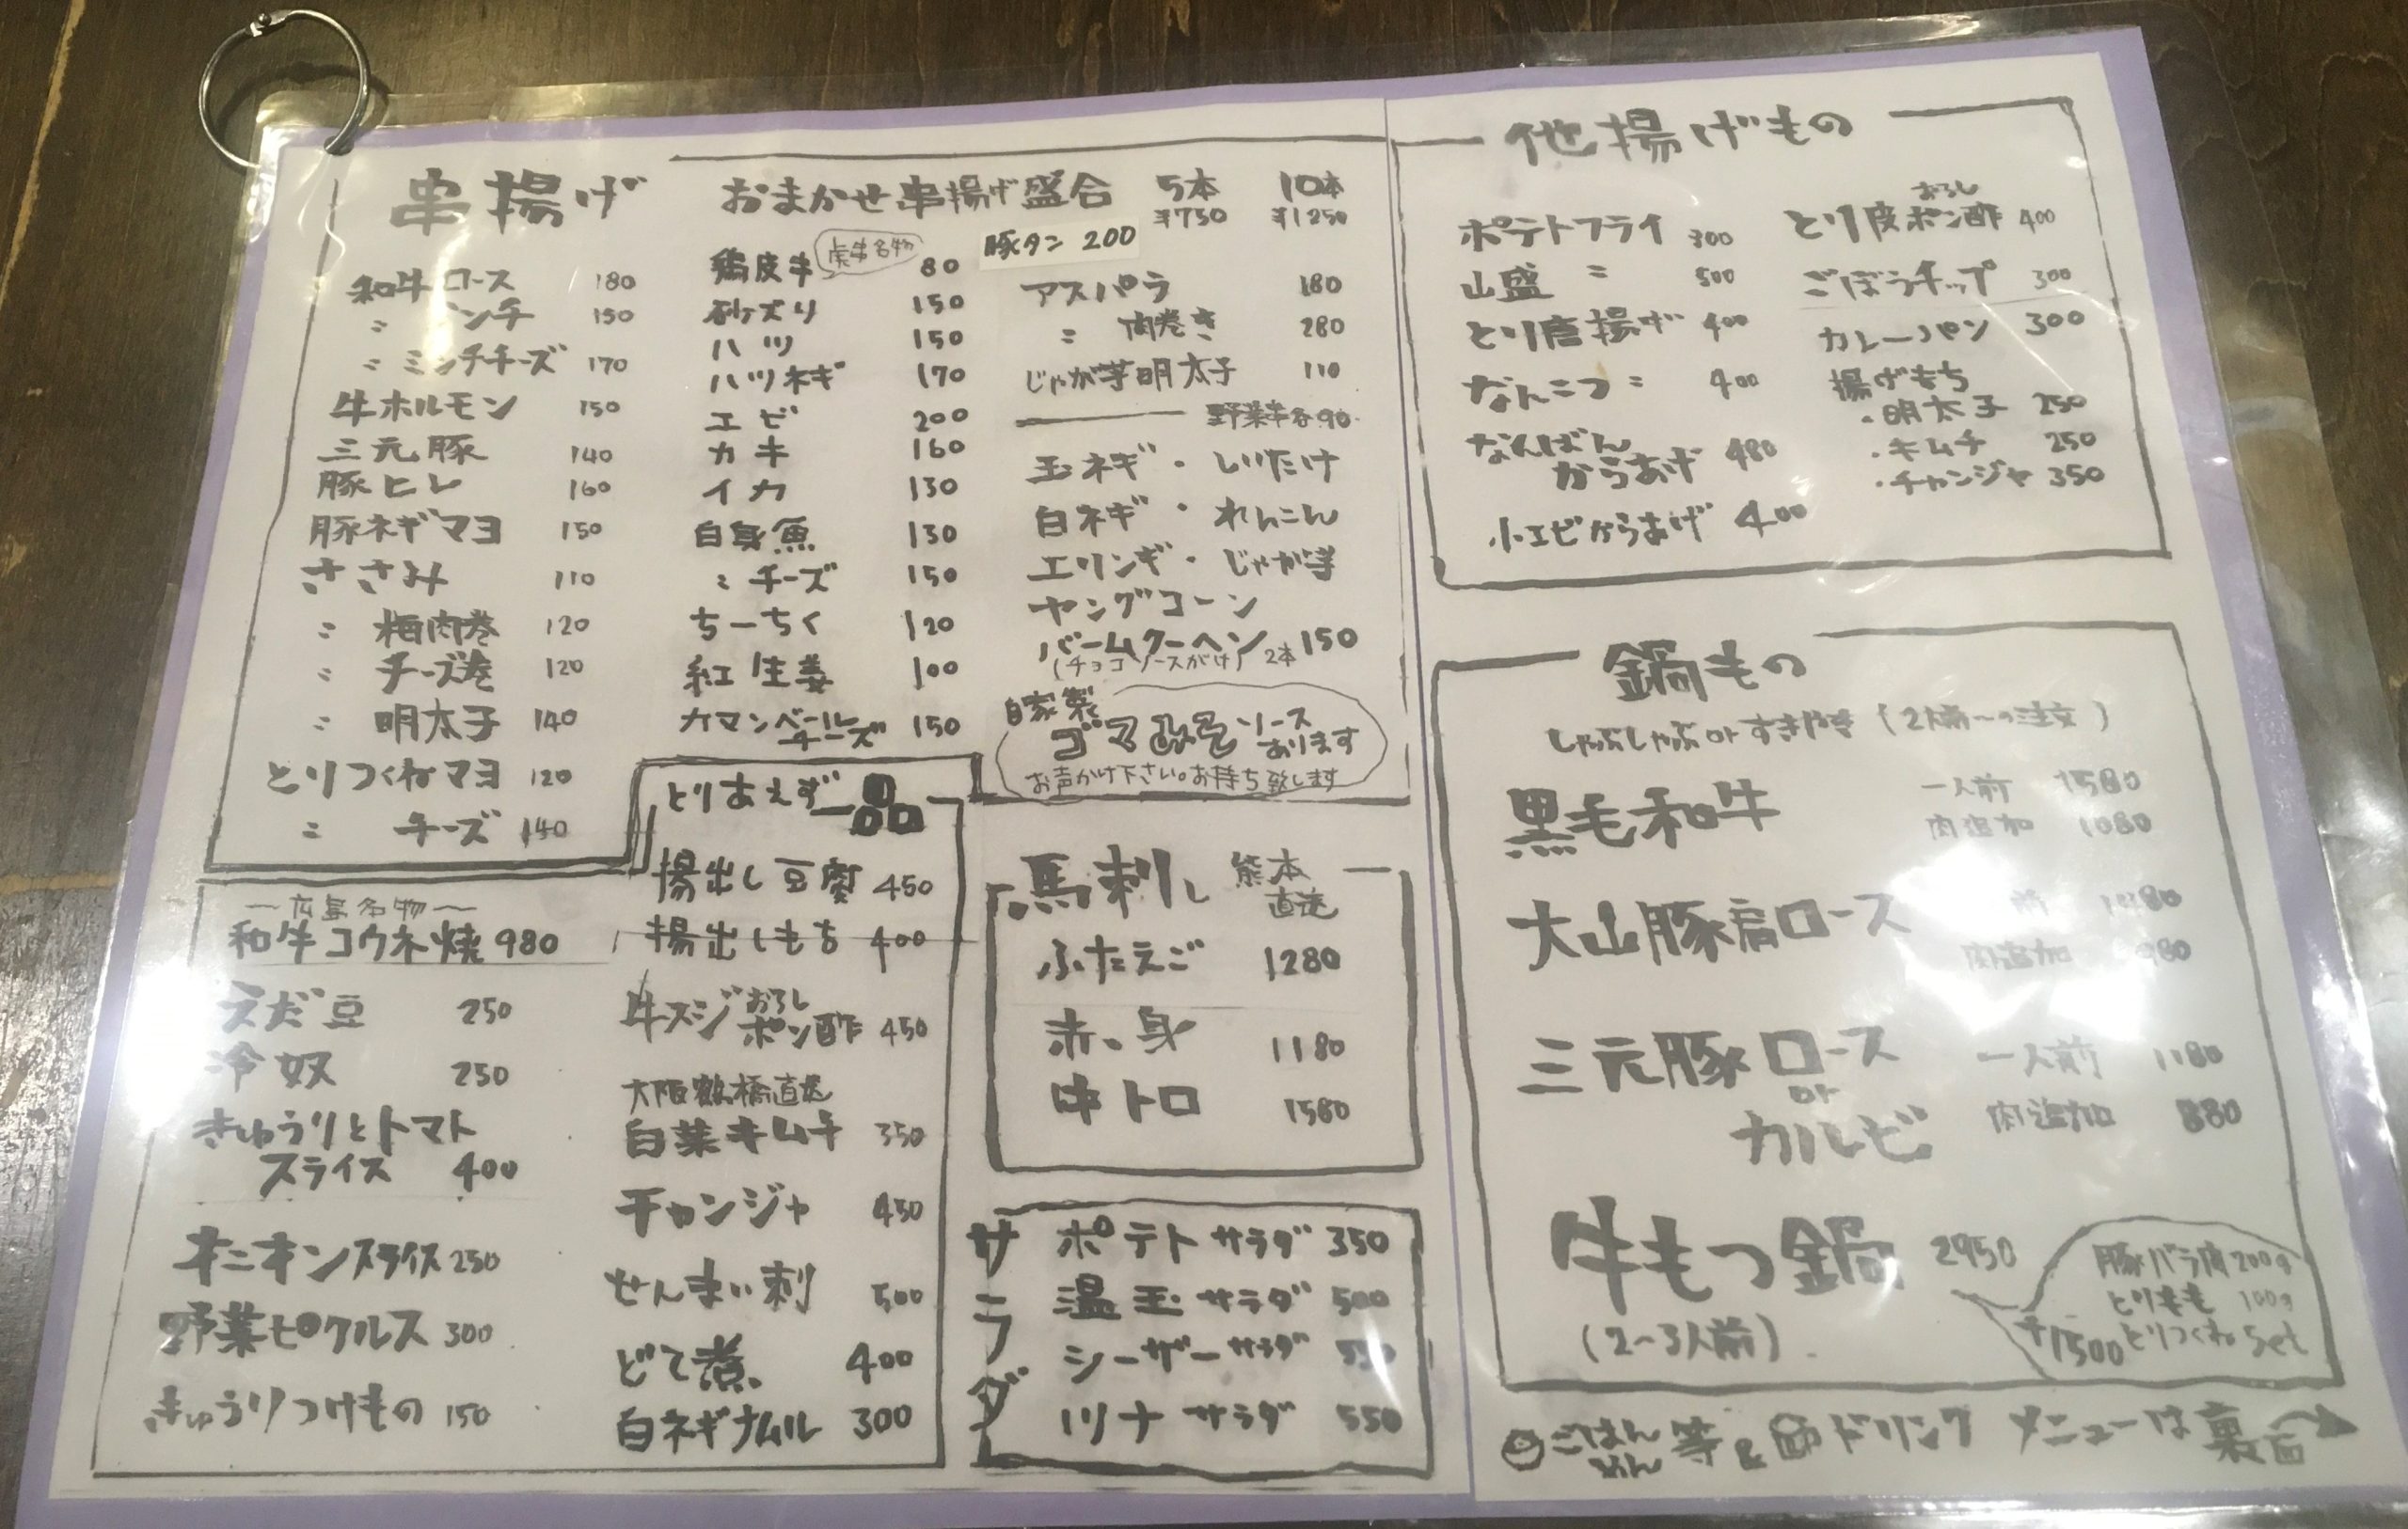 串揚げ
おまかせ串揚げ盛合 5本 10本
¥750 ¥1250
和牛ロース 180
〃 ミンチ 150
〃 ミンチチーズ 170
牛ホルモン 150
三元豚 140
豚ヒレ 160
豚ネギマヨ 150
ささみ 110
〃 梅肉巻 120
〃 チーズ巻 120
〃 明太子 140
とりつくねマヨ 120
〃 チーズ 140
鶏皮串 80
砂ズリ 150
ハツ 150
ハツネギ 170
エビ 200
カキ 160
イカ 130
白身魚 130
〃 チーズ 150
ちーちく 120
紅生姜 100
カマンベールチーズ 150
豚タン 200
アスパラ 180
〃 肉巻き 280
じゃが芋明太子 110
野菜串各90
玉ネギ・しいたけ
白ネギ・れんこん
エリンギ・じゃが芋
ヤングコーン
バームクーヘン 2本 150
(チョコソースがけ)
自家製
ゴマみそソース
あります
お声かけ下さい。お持ち致します
とりあえず一品
〜広島名物〜
和牛コウネ焼 980
えだ豆 250
冷奴 250
きゅうりとトマト
スライス 400
オニオンスライス 250
野菜ピクルス 300
きゅうりつけもの 150
揚出し豆腐 450
揚出しもち 400
牛スジおろしポン酢 450
大阪鶴橋直送
白菜キムチ 350
チャンジャ 450
せんまい刺 500
どて煮 400
白ネギナムル 300
馬刺し 熊本直送
ふたえご 1280
赤身 1180
中トロ 1580
サラダ
ポテトサラダ 350
温玉サラダ 500
シーザーサラダ 550
ツナサラダ 550
他揚げもの
ポテトフライ 300
山盛 〃 500
とり唐揚げ 400
なんこつ 〃 400
なんばん
からあげ 480
小エビからあげ 400
とり皮おろしポン酢 400
ごぼうチップ 300
カレーパン 300
揚げもち
・明太子 250
・キムチ 250
・チャンジャ 350
鍋もの
しゃぶしゃぶ or すきやき (2人前〜の注文)
黒毛和牛 一人前 1580
肉追加 1080
大山豚肩ロース 前
肉追加
三元豚ロース 一人前 1180
or
カルビ 肉追加 880
牛もつ鍋 2950
(2〜3人前)
豚バラ肉200g
とりもも 100g
とりつくね Set
+1500
ごはん めん 等 & ドリンク メニューは裏面